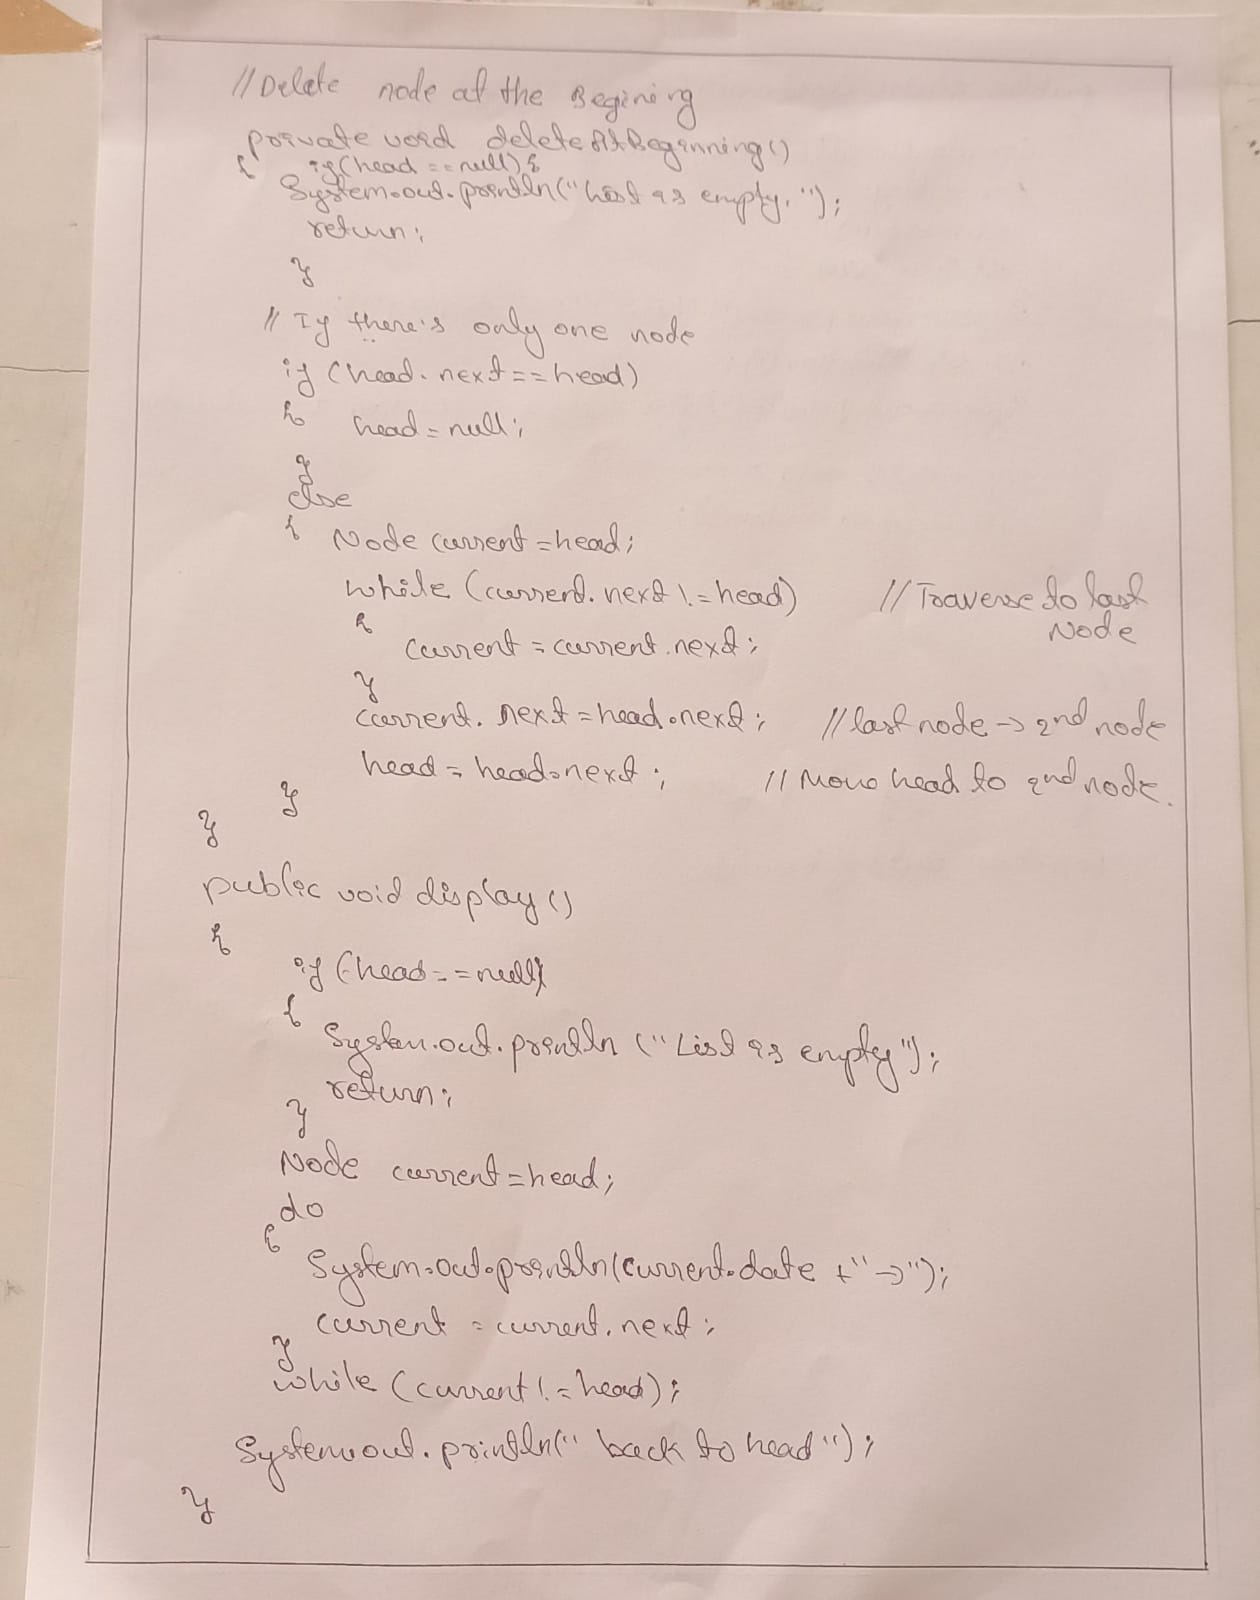 //Delete node at the Begining
private void deleteAtBeginning()
{ if(head == null) {
System.out.println("List is empty.");
return;
}
// If there's only one node
if (head.next == head)
{ head = null;
}
else
{ Node current = head;
while (current.next != head) // Traverse to last
Node
{
current = current.next;
}
current.next = head.next; // last node -> 2nd node
head = head.next; // Move head to 2nd node.
}
}
public void display()
{
if (head == null)
{
System.out.println ("List is empty");
return;
}
Node current = head;
do
{
System.out.println(current.date +"->");
current = current.next;
}
while (current != head);
System.out.println(" back to head");
}